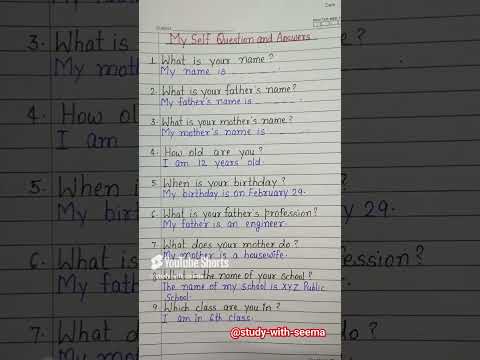 My Self Question and Answers
1. What is your name?
My name is
2. What is your father's name?
My father's name is
3. What is your mother's name?
My mother's name is
4. How old are you?
I am 12 years old.
5. When is your birthday?
My birthday is on February 29.
6. What is your father's profession?
My father is an engineer.
7. What does your mother do?
My mother is a housewife.
YouTube Shorts
is the name of your school?
The name of my school is XYZ Public
School.
9. Which class are you in?
I am in 6th class.
@study-with-seema
3. What is
My moth
4. How
I am
5. When
My birt
6. What is
My fath
7. What
ame?
29.
ession?
do?